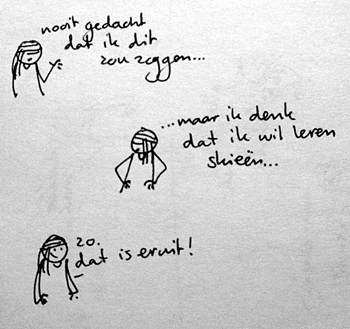 nooit gedacht
dat ik dit
zou zeggen...
...maar ik denk
dat ik wil leren
skieën...
zo.
dat is eruit!